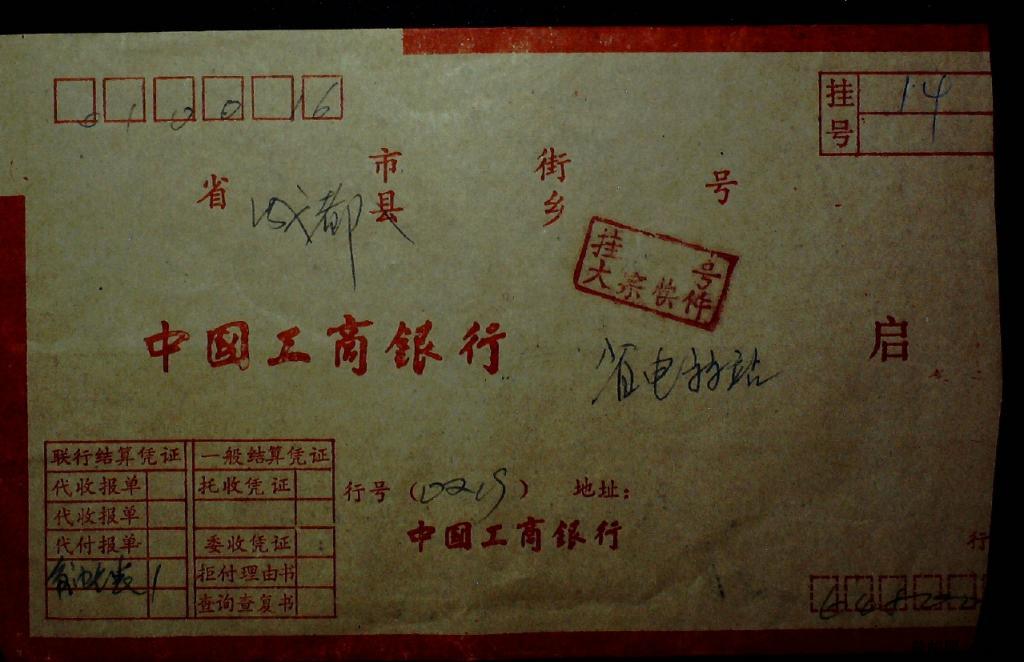 610016
挂号 14
省 成都 市县 街乡 号
挂号
大宗快件
中国工商銀行 启
省电材站
联行结算凭证 一般结算凭证
代收报单 托收凭证
代收报单
代付报单 委收凭证
拒付理由书
查询查复书
行号（） 地址：
中国工商銀行
行